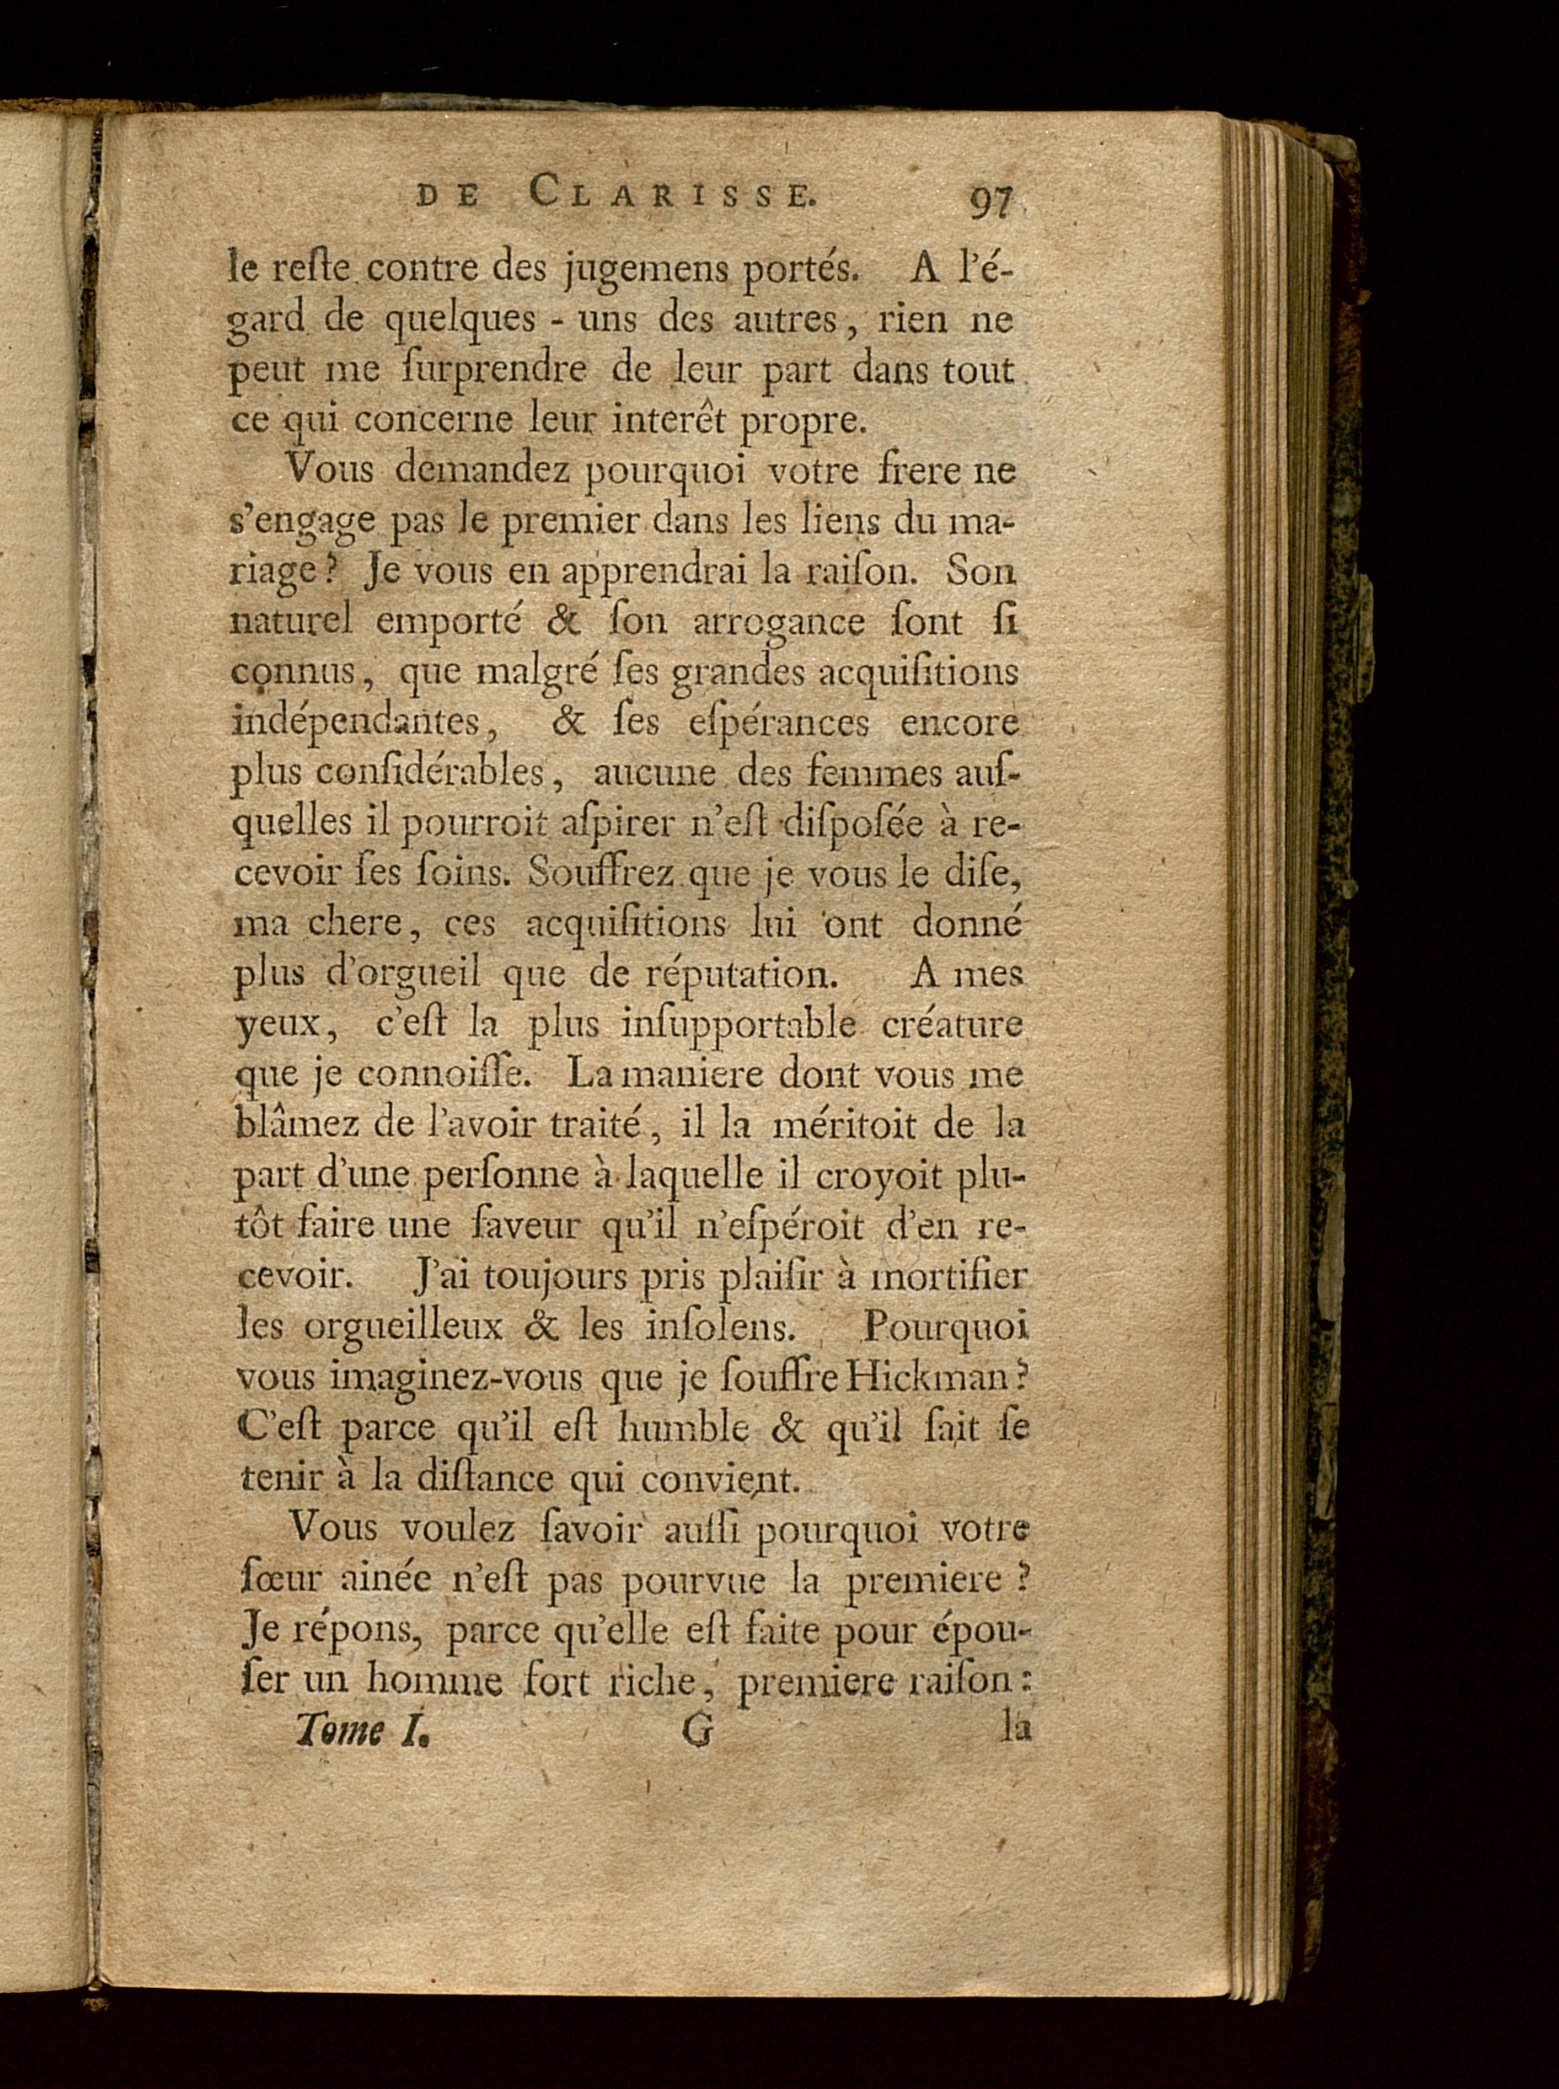 DE CLARISSE. 97
le reſte contre des jugemens portés. A l'é-
gard de quelques - uns des autres, rien ne
peut me ſurprendre de leur part dans tout
ce qui concerne leur interêt propre.
Vous demandez pourquoi votre frere ne
s'engage pas le premier dans les liens du ma-
riage? Je vous en apprendrai la raiſon. Son
naturel emporté & ſon arrogance ſont ſi
connus, que malgré ſes grandes acquiſitions
indépendantes, & ſes eſpérances encore
plus conſidérables, aucune des femmes auſ-
quelles il pourroit aſpirer n'eſt diſpoſée à re-
cevoir ſes ſoins. Souffrez que je vous le diſe,
ma chere, ces acquiſitions lui ont donné
plus d'orgueil que de réputation. A mes
yeux, c'eſt la plus inſupportable créature
que je connoiſſe. La maniere dont vous me
blâmez de l'avoir traité, il la méritoit de la
part d'une perſonne à laquelle il croyoit plu-
tôt faire une faveur qu'il n'eſpéroit d'en re-
cevoir. J'ai toujours pris plaiſir à mortifier
les orgueilleux & les inſolens. Pourquoi
vous imaginez-vous que je ſouffre Hickman?
C'eſt parce qu'il eſt humble & qu'il ſait ſe
tenir à la diſtance qui convient.
Vous voulez ſavoir auſſi pourquoi votre
ſœur ainée n'eſt pas pourvue la premiere?
Je répons, parce qu'elle eſt faite pour épou-
ſer un homme fort riche, premiere raiſon:
Tome I. G la